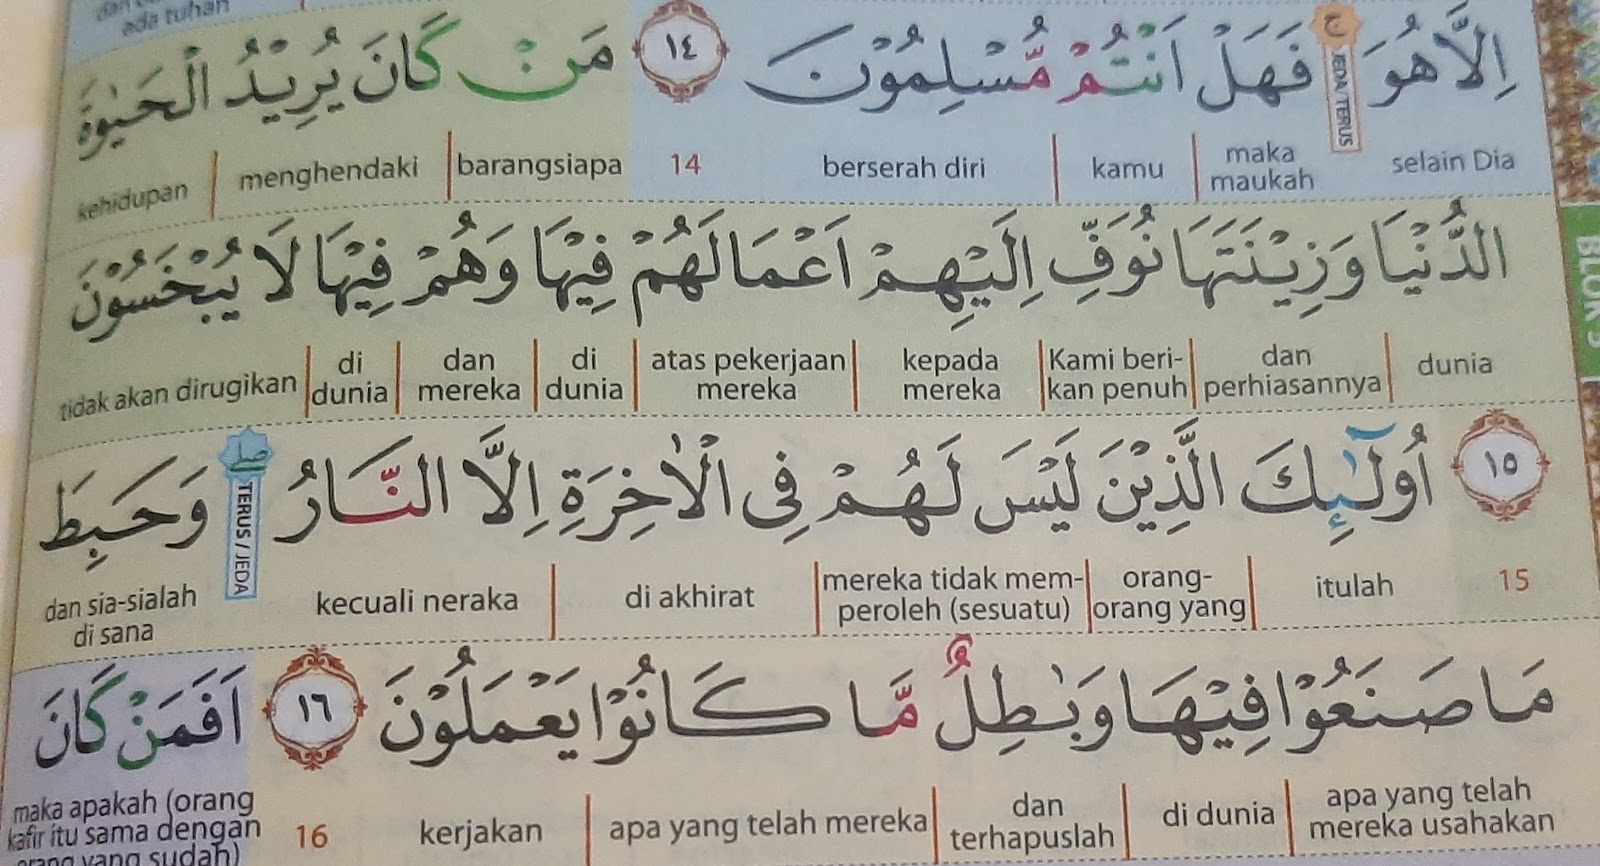 ada tuhan
اِلَّا هُوَ ۚ فَهَلْ اَنْتُمْ مُّسْلِمُوْنَ ١٤ مَنْ كَانَ يُرِيْدُ الْحَيٰوةَ
JEDA/TERUS
selain Dia
maka maukah
kamu
berserah diri
14
barangsiapa
menghendaki
kehidupan
الدُّنْيَا وَزِيْنَتَهَا نُوَفِّ اِلَيْهِمْ اَعْمَالَهُمْ فِيْهَا وَهُمْ فِيْهَا لَا يُبْخَسُوْنَ
BLOK
dunia
dan perhiasannya
Kami beri-
kan penuh
kepada mereka
atas pekerjaan mereka
di dunia
dan mereka
di dunia
tidak akan dirugikan
١٥ اُولٰۤىِٕكَ الَّذِيْنَ لَيْسَ لَهُمْ فِى الْاٰخِرَةِ اِلَّا النَّارُ ۖ وَحَبِطَ
TERUS / JEDA
15
itulah
orang-
orang yang
mereka tidak mem-
peroleh (sesuatu)
di akhirat
kecuali neraka
dan sia-sialah
di sana
مَا صَنَعُوْا فِيْهَا وَبٰطِلٌ مَّا كَانُوْا يَعْمَلُوْنَ ١٦ اَفَمَنْ كَانَ
apa yang telah
mereka usahakan
di dunia
dan
terhapuslah
apa yang telah mereka
kerjakan
16
maka apakah (orang
kafir itu sama dengan
orang yang sudah)